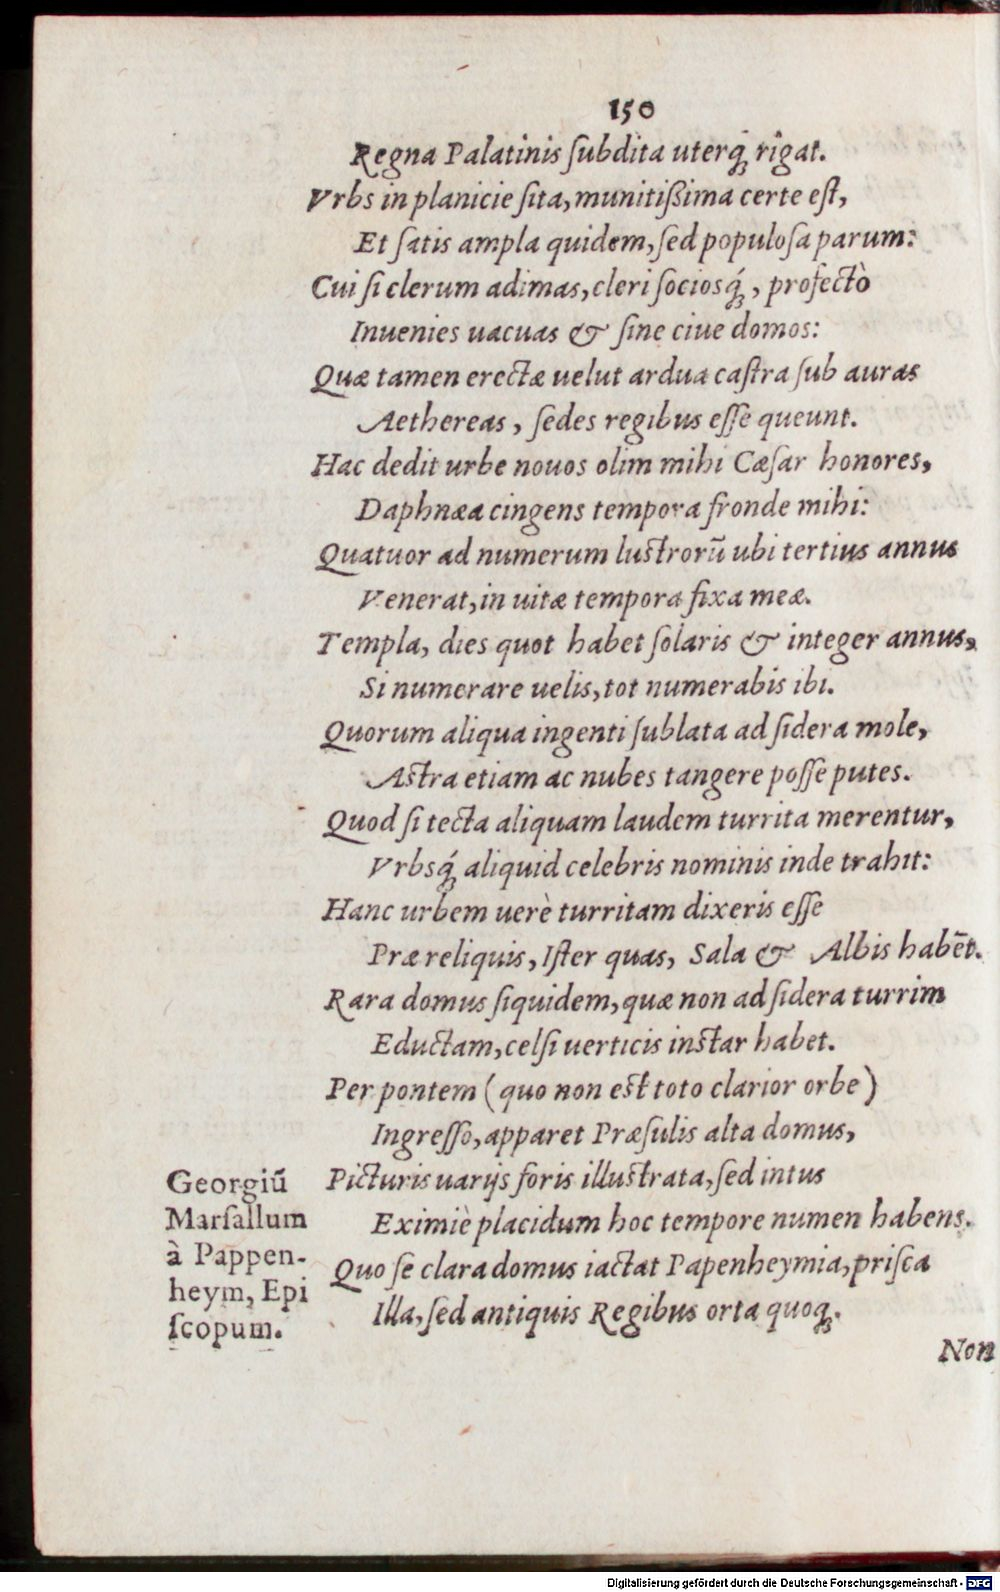 150
Regna Palatinis ſubdita uterq́ꝫ rigat.
Vrbs in planicie ſita, munitiſsima certe eſt,
Et ſatis ampla quidem, ſed populoſa parum:
Cui ſi clerum adimas, cleri ſociosq́ꝫ, profectò
Inuenies uacuas & ſine ciue domos:
Quæ tamen erectæ uelut ardua caſtra ſub auras
Aethereas, ſedes regibus eſſe queunt.
Hac dedit urbe nouos olim mihi Cæſar honores,
Daphnæa cingens tempora fronde mihi:
Quatuor ad numerum luſtrorū ubi tertius annus
Venerat, in uitæ tempora fixa meæ.
Templa, dies quot habet ſolaris & integer annus,
Si numerare uelis, tot numerabis ibi.
Quorum aliqua ingenti ſublata ad ſidera mole,
Aſtra etiam ac nubes tangere poſſe putes.
Quod ſi tecta aliquam laudem turrita merentur,
Vrbsq́ꝫ aliquid celebris nominis inde trahit:
Hanc urbem uerè turritam dixeris eſſe
Præ reliquis, Iſter quas, Sala & Albis habēt.
Rara domus ſiquidem, quæ non ad ſidera turrim
Eductam, celſi uerticis inſtar habet.
Per pontem (quo non eſt toto clarior orbe)
Ingreſſo, apparet Præſulis alta domus,
Picturis uarijs foris illuſtrata, ſed intus
Eximiè placidum hoc tempore numen habens.
Quo ſe clara domus iactat Papenheymia, priſca
Illa, ſed antiquis Regibus orta quoqꝫ.
Georgiū
Marſallum
à Pappen-
heym, Epi
ſcopum.
Non
Digitalisierung gefördert durch die Deutsche Forschungsgemeinschaft - DFG